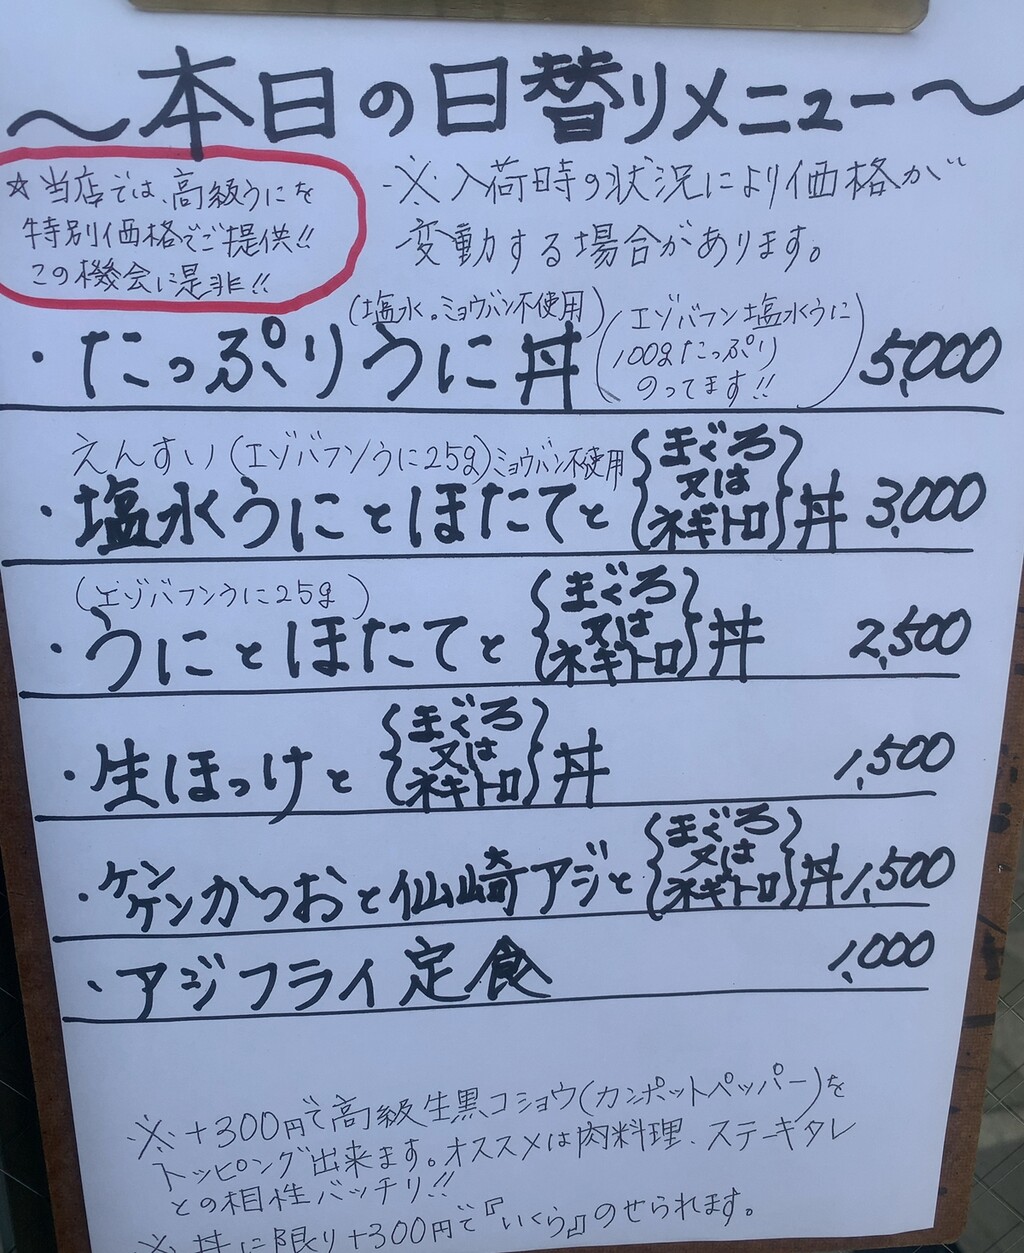 〜本日の日替りメニュー〜
☆当店では、高級うにを
特別価格でご提供!!
この機会に是非!!
※入荷時の状況により価格が
変動する場合があります。
(塩水。ミョウバン不使用)
・たっぷりうに丼
(エゾバフン塩水うに
100gたっぷり
のってます!!)
5,000
えんすい(エゾバフンうに25g)ミョウバン不使用
・塩水うにとほたてと{まぐろ
又は
ネギトロ}丼 3,000
(エゾバフンうに25g)
・うにとほたてと{まぐろ
又は
ネギトロ}丼 2,500
・生ほっけと{まぐろ
又は
ネギトロ}丼 1,500
・ケンケンかつおと仙崎アジと{まぐろ
又は
ネギトロ}丼 1,500
・アジフライ定食 1,000
※+300円で高級生黒コショウ(カンポットペッパー)を
トッピング出来ます。オススメは肉料理、ステーキタレ
との相性バッチリ!!
※丼に限り+300円で『いくら』のせられます。